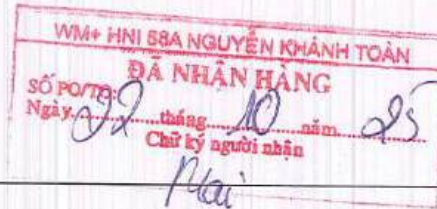 WM+ HNI 58A NGUYỄN KHÁNH TOÀN
ĐÃ NHẬN HÀNG
SỐ PO/TO:
Ngày 22 tháng 10 năm 25
Chữ ký người nhận
Mai